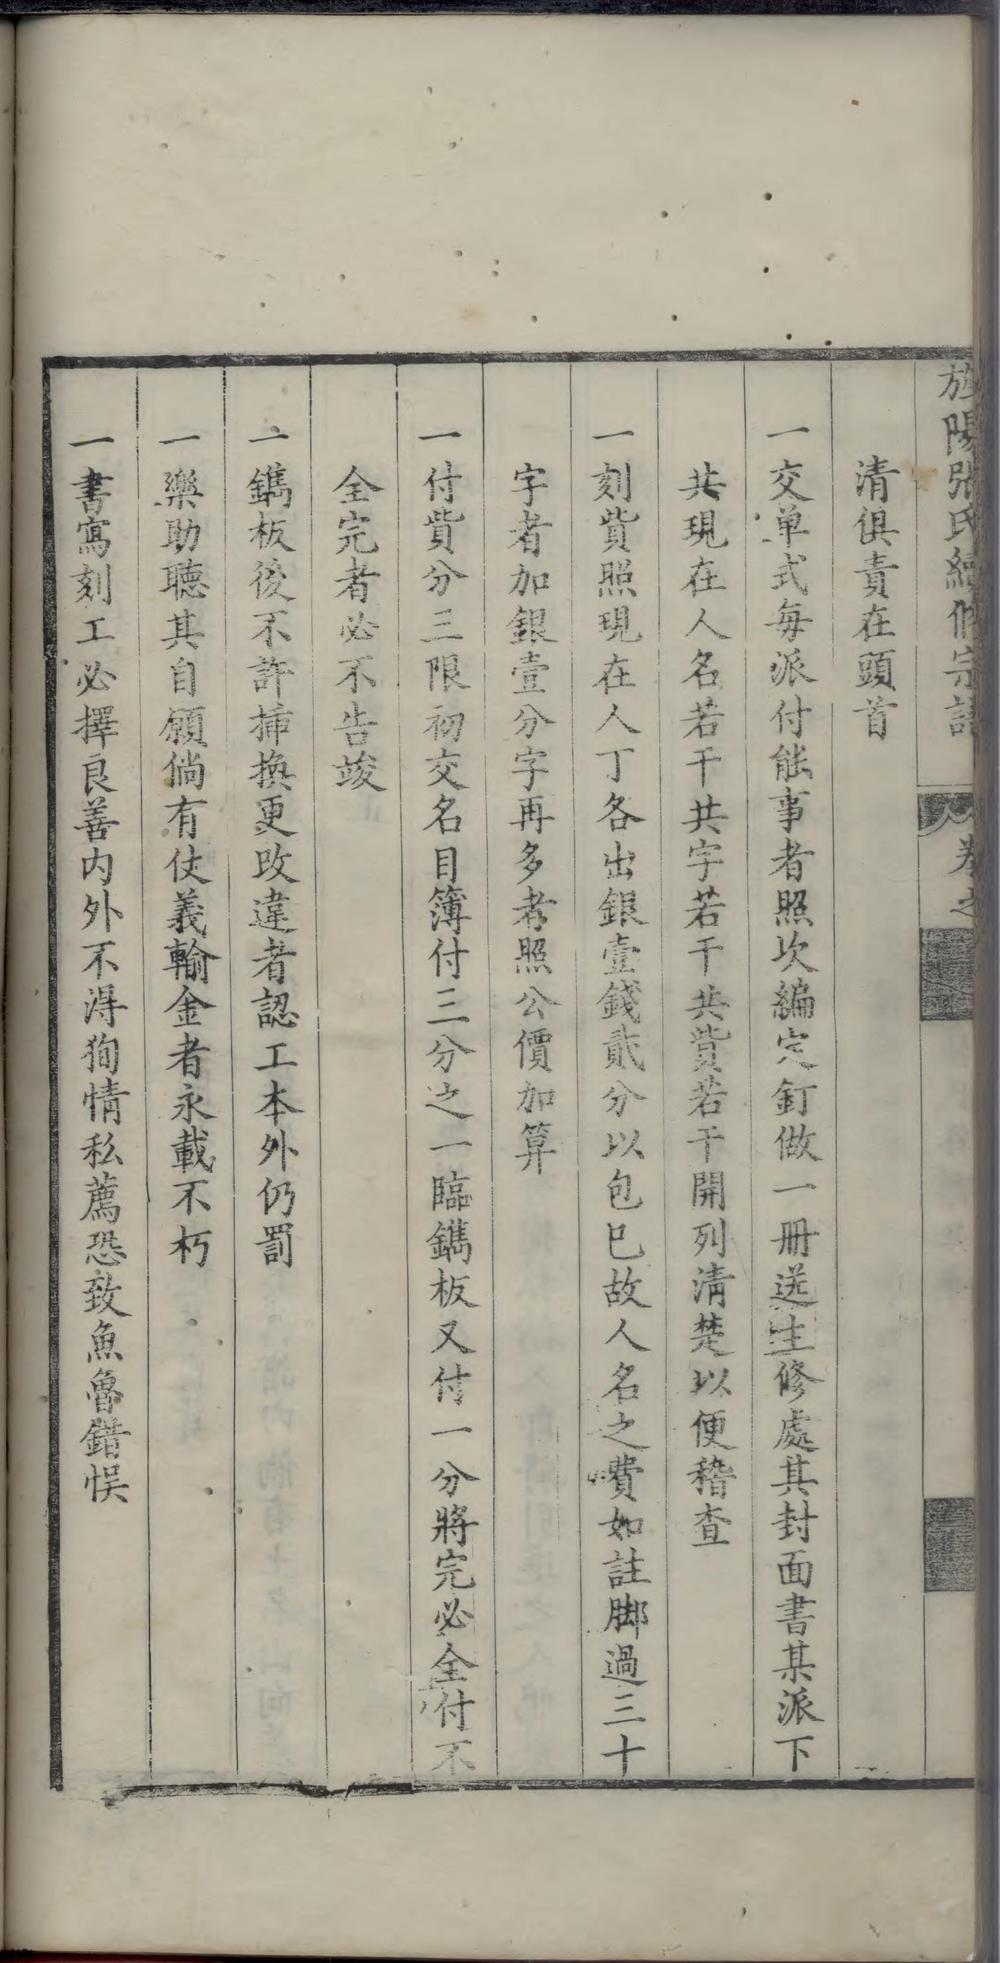 旌陽張氏續修宗譜
卷之
清俱責在頭首
一交单式每派付能事者照次編定釘做一冊送生修處其封面書某派下
共現在人名若干共字若干共貲若干開列清楚以便稽查
一刻貲照現在人丁各出銀壹錢貳分以包已故人名之費如註脚過三十
字者加銀壹分字再多者照公價加算
一付貲分三限初交名目簿付三分之一臨鐫板又付一分將完必全付不
全完者必不告竣
一鐫板後不許揷換更改違者認工本外仍罰
一樂助聽其自願倘有仗義輸金者永載不朽
一書寫刻工必擇良善内外不淂狥情私薦恐致魚魯錯悞